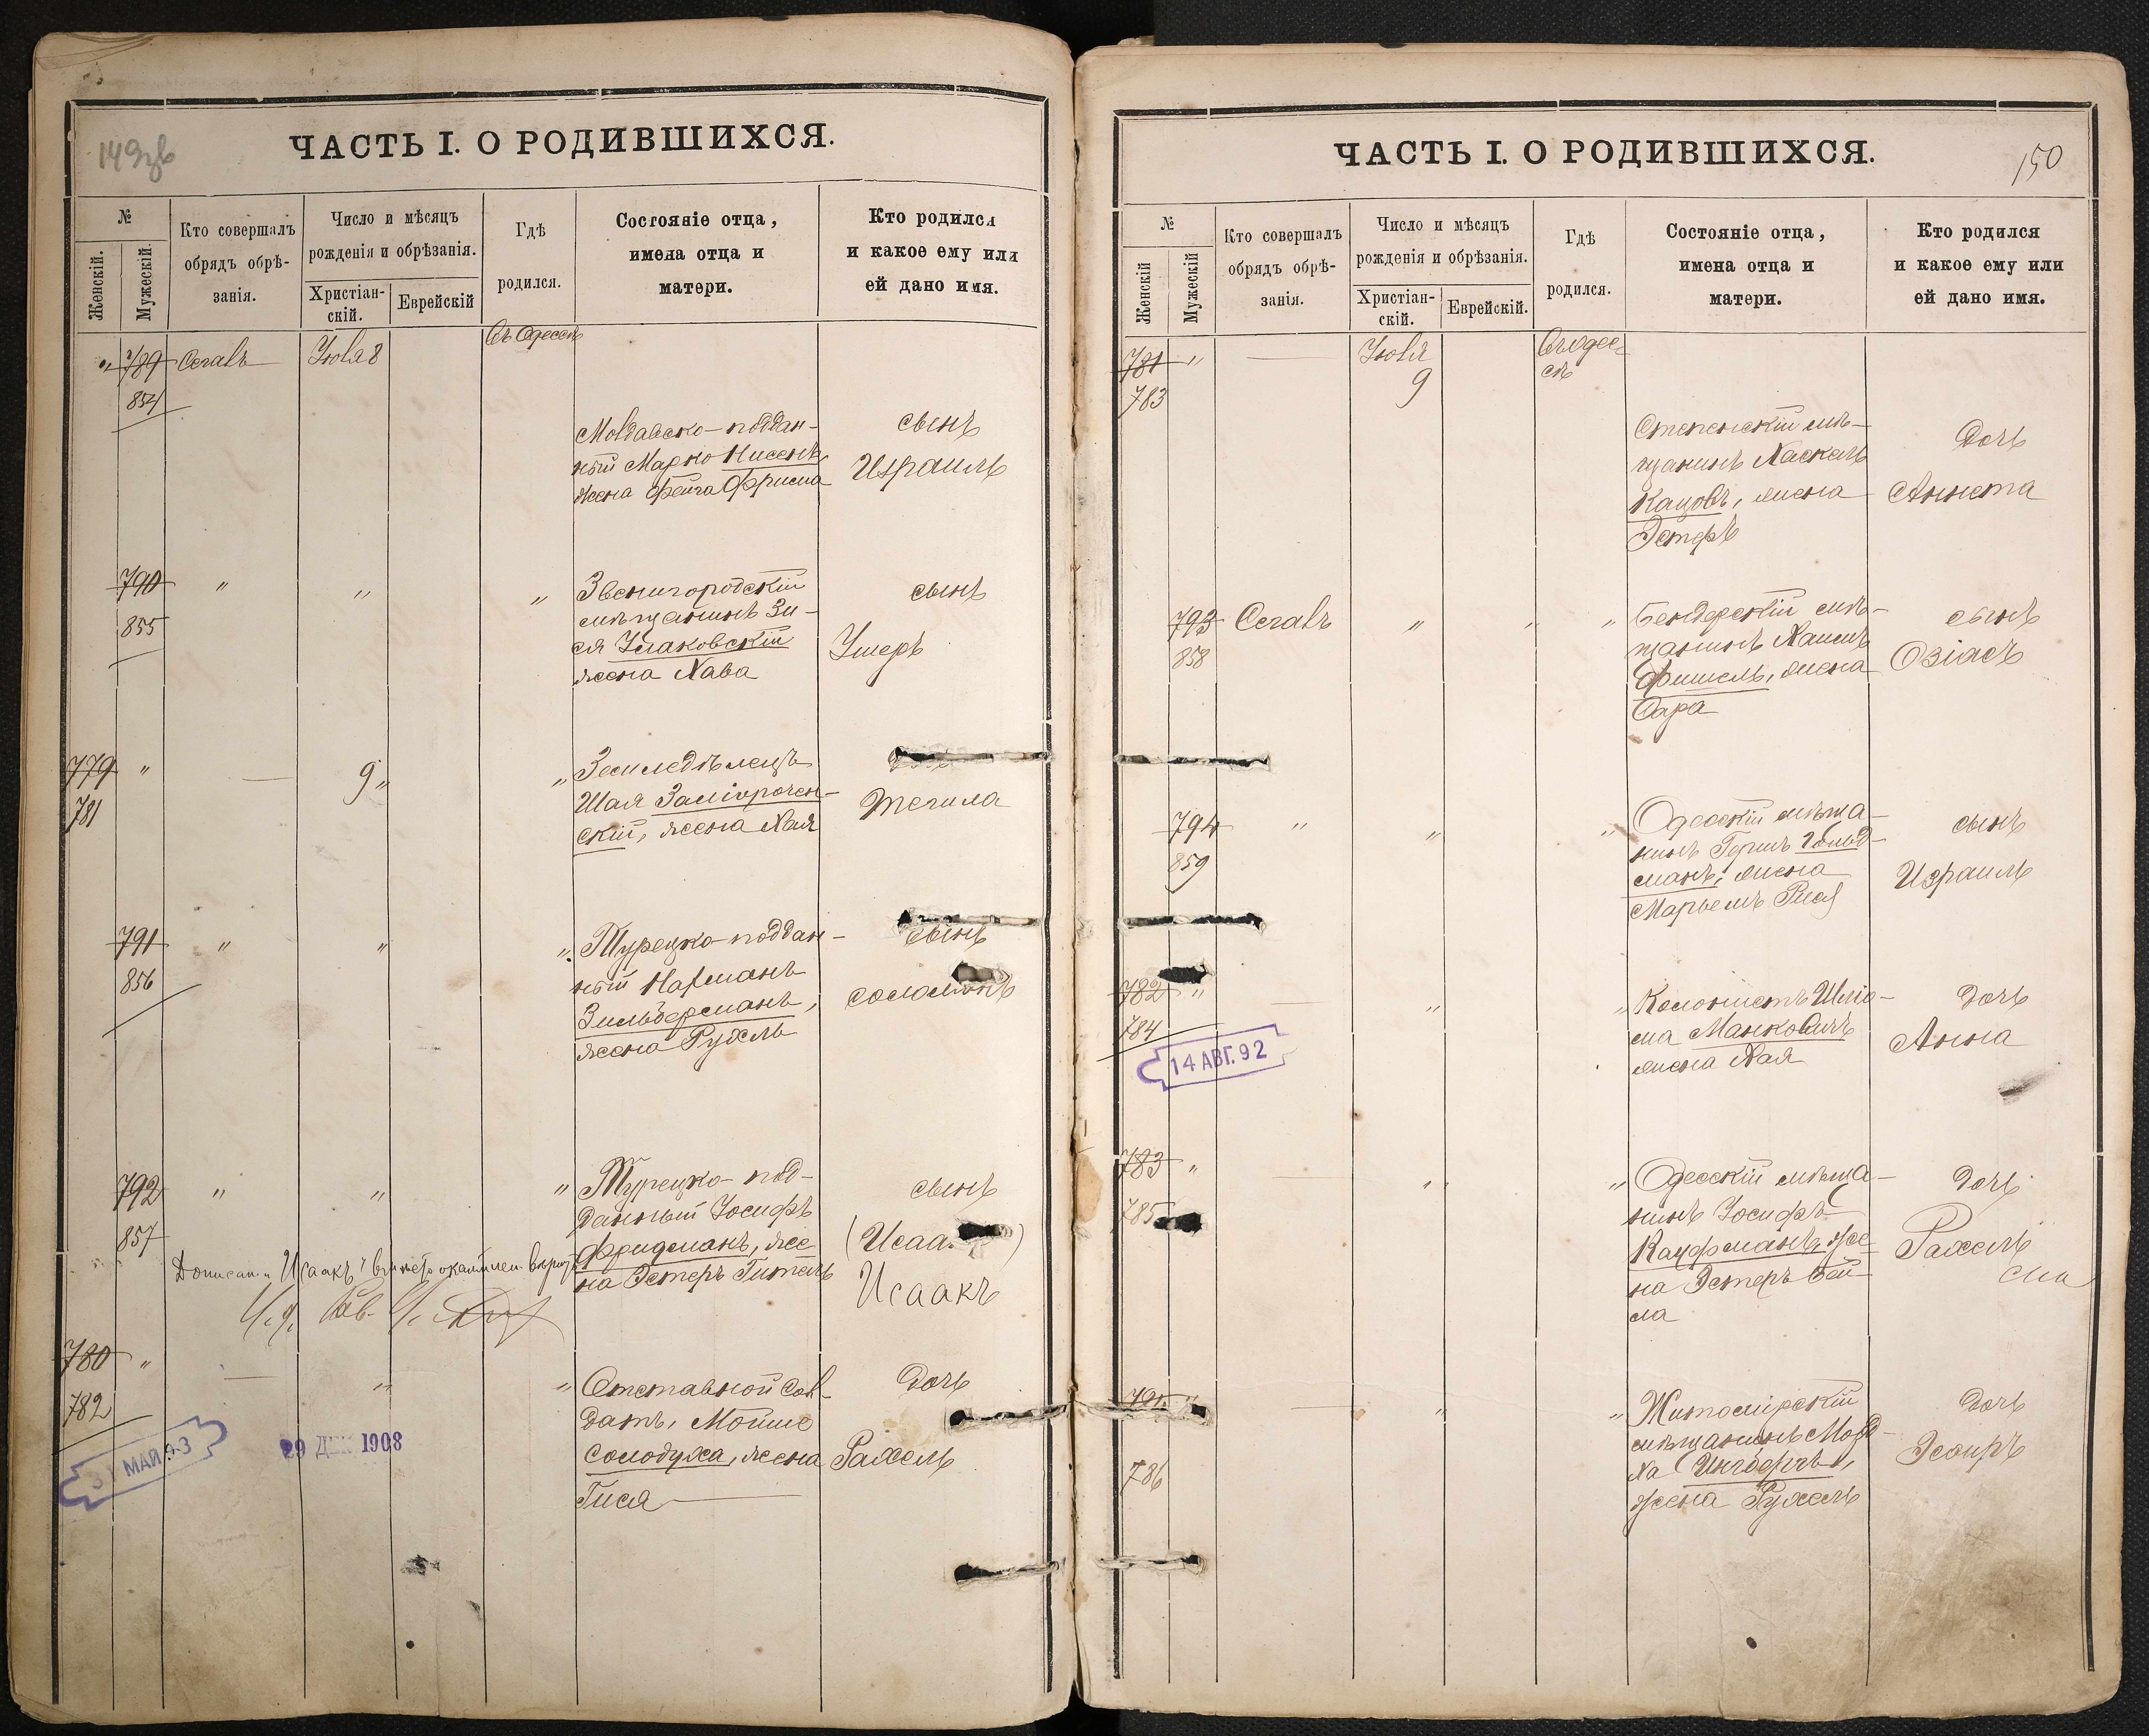 149зв
ЧАСТЬ I. О РОДИВШИХСЯ.
№
Женскій.
Мужескій.
Кто совершалъ
обрядъ обрѣ-
занія.
Число и мѣсяцъ
рожденія и обрѣзанія.
Христіан-
скій.
Еврейскій
Гдѣ
родился.
Состояніе отца,
имена отца и
матери.
Кто родился
и какое ему или
ей дано имя.
" 789 Сегалъ Іюля 8 Въ Одессѣ
854
Молдавско-поддан-
ный Марко Нисенъ,
жена Фейга Фрима
сынъ
Израиль
790 " " "
855
Звенигородскій
мѣщанинъ Зи-
ся
жена Хава
сынъ
Ушеръ
779 " — 9 " "
781
Земледѣлецъ
Шая
скій, жена Хая
Тегила
791 " " "
856
Турецко-поддан-
ный Нахманъ
Зильберманъ,
жена Рухль
сынъ
Соломонъ
792 " " "
857
Турецко-под-
данный Іосифъ
Фридманъ, же-
на Эстеръ Гитель
сынъ
(Исаа )
Исаакъ
Дописан. "Исаакъ"
780 " — " "
782
Отставной Сол-
датъ, Мойше
Солодуха, жена
Гися
Дочь
Рахель
31 МАЙ 93
29 ДЕК 1908
150
ЧАСТЬ I. О РОДИВШИХСЯ.
№
Женскій
Мужескій
Кто совершалъ
обрядъ обрѣ-
занія.
Число и мѣсяцъ
рожденія и обрѣзанія.
Христіан-
скій.
Еврейскій.
Гдѣ
родился.
Состояніе отца,
имена отца и
матери.
Кто родился
и какое ему или
ей дано имя.
781 " — Іюля Въ Одес-
783 9 сѣ
Степенскій мѣ-
щанинъ Хаскель
Кацовъ, жена
Эстеръ
Дочь
Аннета
793 Сегалъ " " "
858
Бендерскій мѣ-
щанинъ Хаимъ
Фишель, жена
Сара
сынъ
Озіасъ
794 " " "
859
Одесскій мѣща-
нинъ Гершъ Гольд-
манъ, жена
Марьемъ Рися
сынъ
Израиль
782 " — " "
784
Колонистъ Шлio-
ма Манковичъ
жена Хая
Дочь
Анна
14 АВГ. 92
783 " — " "
785
Одесскій мѣща-
нинъ Іосифъ
Кауфманъ, же-
на Эстеръ Бей-
ла
Дочь
Рахель
— " "
786
Житомірскій
мѣщанинъ Морд-
ха Ингберъ,
жена Рухель
Дочь
Эсѳирь